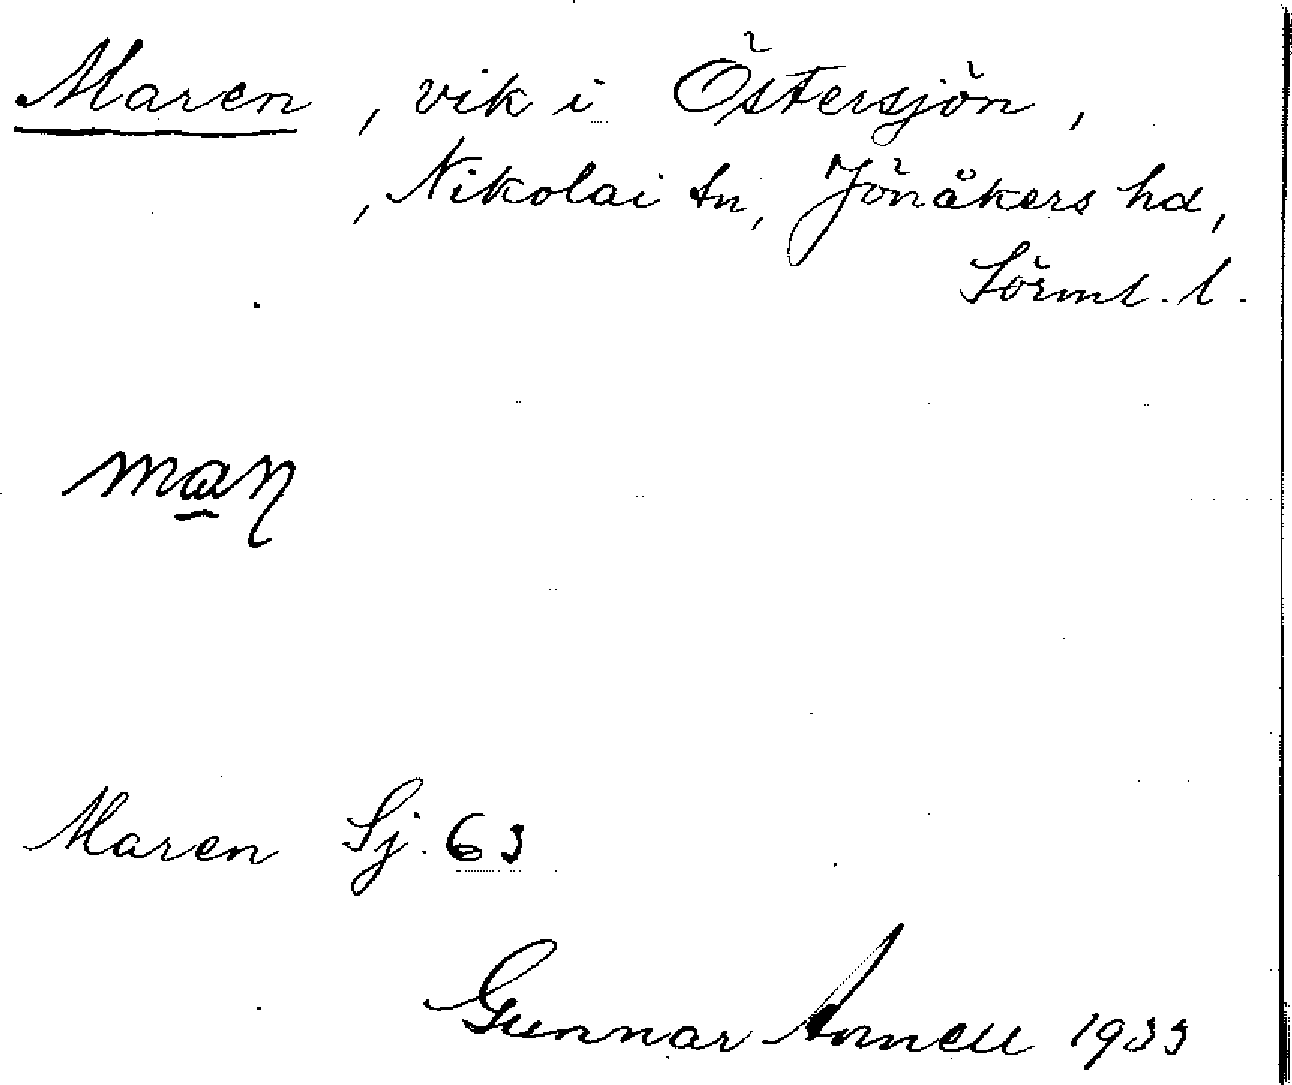 Maren, vik i Östersjön,
, Nikolai sn, Jönåkers hd,
Sörml. l.
Maren Sj. 63
Gunnar 1933